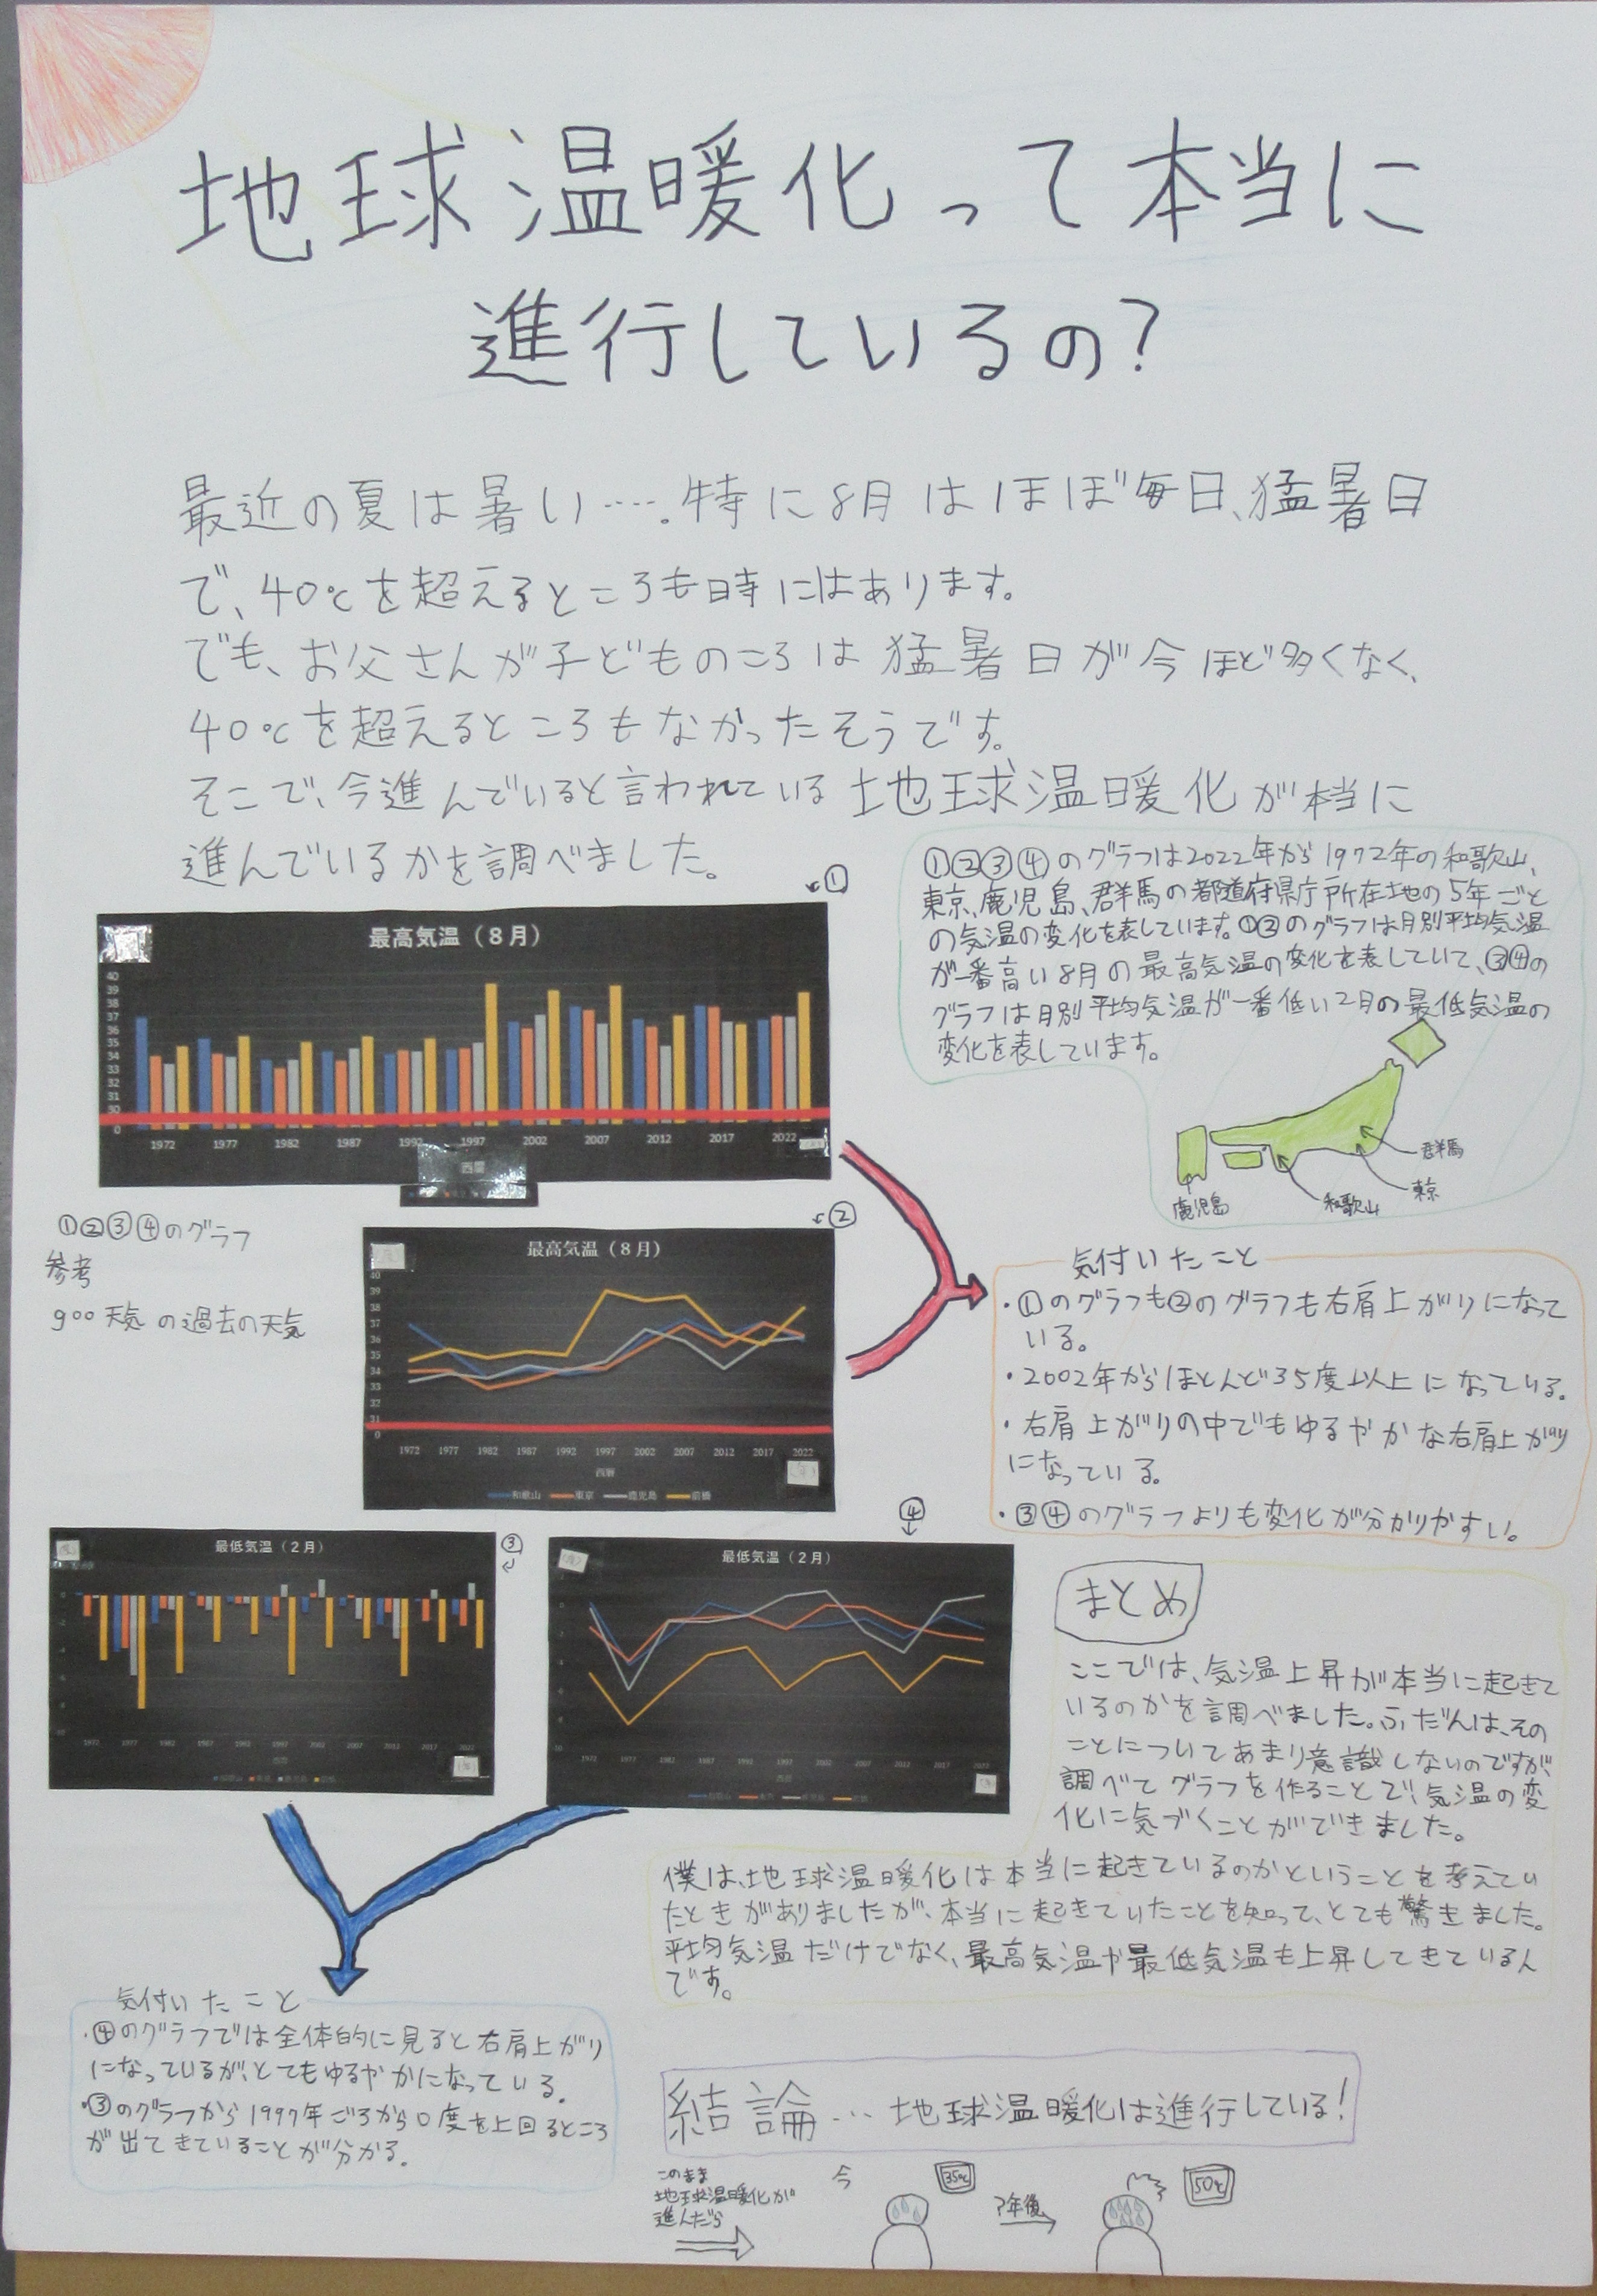 地球温暖化って本当に
進行しているの?
最近の夏は暑い…。特に8月はほぼ毎日、猛暑日
で、40℃を超えるところも時にはあります。
でも、お父さんが子どものころは猛暑日が今ほど多くなく、
40℃を超えるところもなかったそうです。
そこで、今進んでいると言われている地球温暖化が本当に
進んでいるかを調べました。
①②③④のグラフは2022年から1972年の和歌山、
東京、鹿児島、群馬の都道府県庁所在地の5年ごと
の気温の変化を表しています。①②のグラフは月別平均気温
が一番高い8月の最高気温の変化を表していて、③④の
グラフは月別平均気温が一番低い2月の最低気温の
変化を表しています。
群馬
東京
和歌山
鹿児島
①
最高気温(8月)
40
39
38
37
36
35
34
33
32
31
30
0
1972 1977 1982 1987 1992 1997 2002 2007 2012 2017 2022
西暦
①②③④のグラフ
参考
goo天気の過去の天気
②
最高気温(8月)
40
39
38
37
36
35
34
33
32
31
0
1972 1977 1982 1987 1992 1997 2002 2007 2012 2017 2022
西暦
和歌山 東京 鹿児島 前橋
気付いたこと
・①のグラフも②のグラフも右肩上がりになって
いる。
・2002年からほとんど35度以上になっている。
・右肩上がりの中でもゆるやかな右肩上がり
になっている。
・③④のグラフよりも変化が分かりやすい。
③
最低気温(2月)
1972 1977 1982 1987 1992 1997 2002 2007 2012 2017 2022
④
最低気温(2月)
1972 1977 1982 1987 1992 1997 2002 2007 2012 2017 2022
まとめ
ここでは、気温上昇が本当に起きて
いるのかを調べました。ふだんは、その
ことについてあまり意識しないのですが、
調べてグラフを作ることで、気温の変
化に気づくことができました。
僕は、地球温暖化は本当に起きているのかということを考えてい
たときがありましたが、本当に起きていたことを知って、とても驚きました。
平均気温だけでなく、最高気温や最低気温も上昇してきているん
です。
気付いたこと
・④のグラフでは全体的に見ると右肩上がり
になっているが、とてもゆるやかになっている。
・③のグラフから1997年ごろから0度を上回るところ
が出てきていることが分かる。
結論…地球温暖化は進行している!
このまま
地球温暖化が
進んだら
今
35℃
?年後
50℃